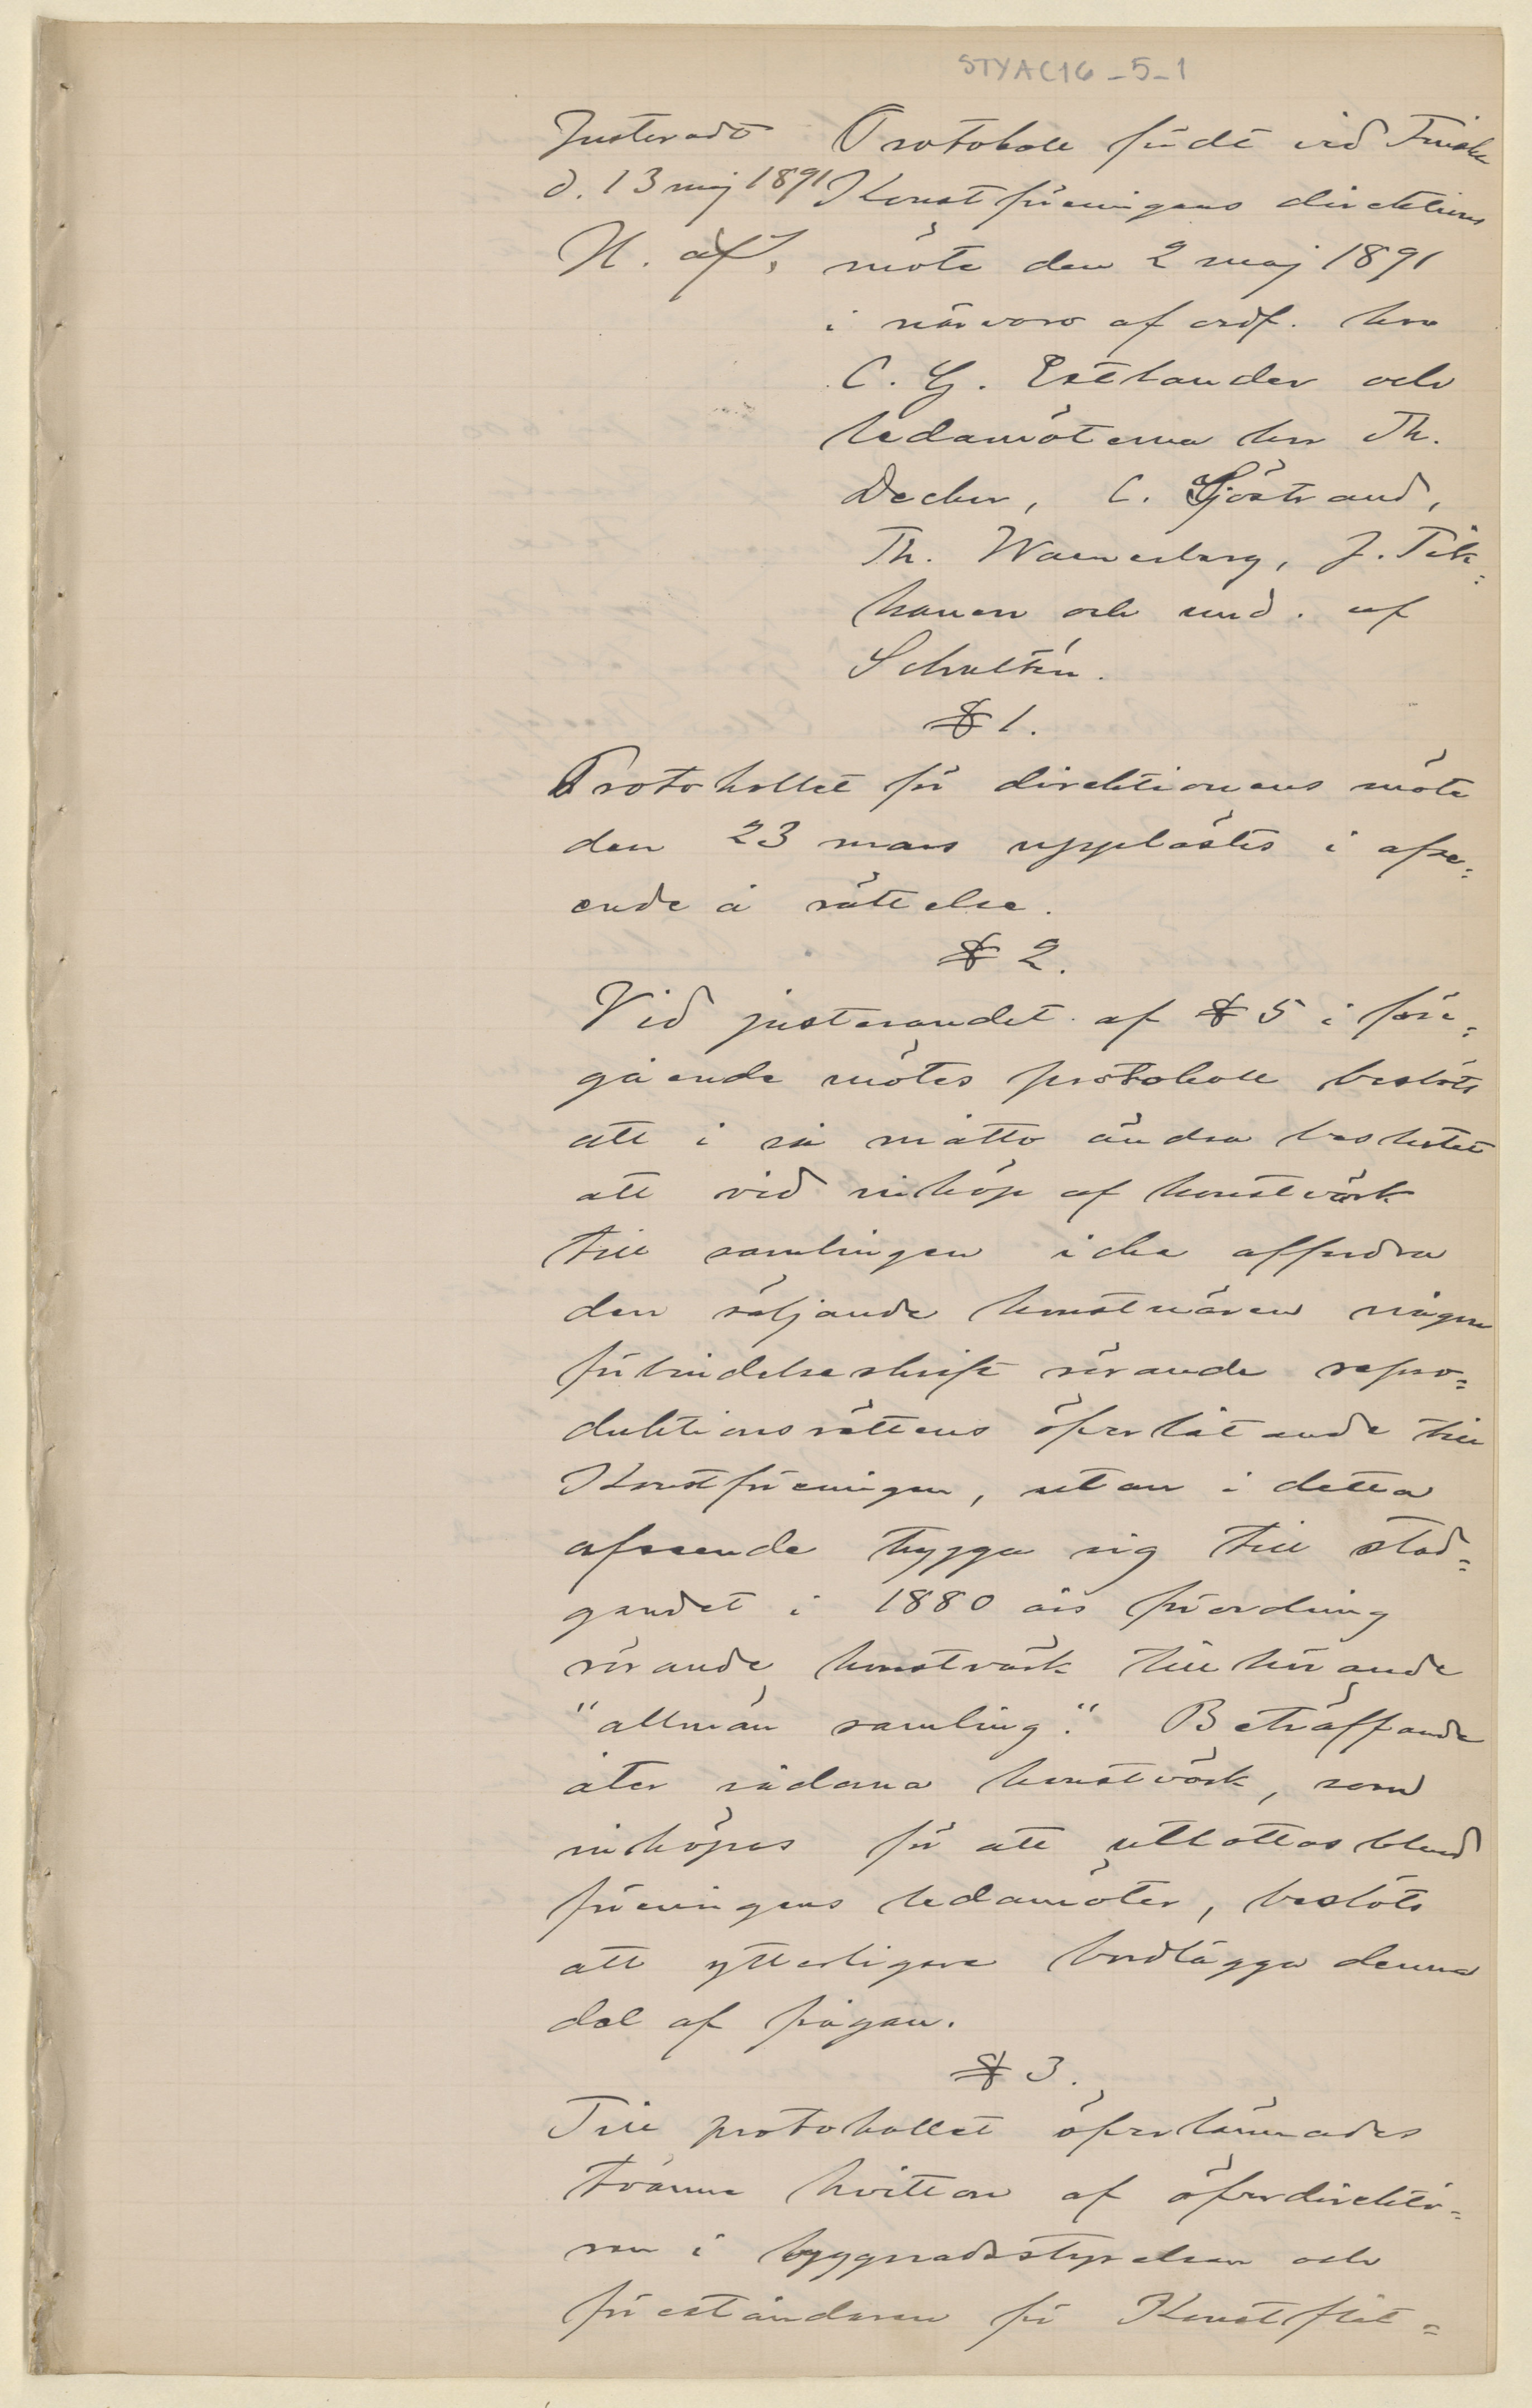 STYAC16_5_1
Justeradt
d. 13 maj 1891
Protokoll fördt vid Finska
Konstföreningens direktions
möte den 2 maj 1891
i närvaro af ordf. hrr
C. G. Estlander och
ledamöterna hrr Th.
Decker, C. Sjöstrand,
Th. Waenerberg, J. Tik=
kanen och und. af
Schultén.
§ 1.
Protokollet för direktionens möte
den 23 mars upplästes i afse=
ende å rättelse.
§ 2.
Vid justerandet af § 5 i före=
gående mötes protokoll beslöts
att i så måtto ändra beslutet
att vid inköp af konstvärk
till samlingen icke affordra
den säljande konstnären någon
förbindelseskrift rörande repro=
duktionsrättens öfverlåtande till
Konstföreningen, utan i detta
afseende trygga sig till stad=
gandet i 1880 års förordning
rörande konstvärk tillhörande
"allmän samling". Beträffande
åter sådana konstvärk, som
inköpas för att utlottas bland
föreningens ledamöter, beslöts
att ytterligare bordlägga denna
del af frågan.
§ 3.
Till protokollet öfverlämnades
tvänne kvitton af öfverdirektö=
ren i byggnadsstyrelsen och
föreståndaren för Konstflit=